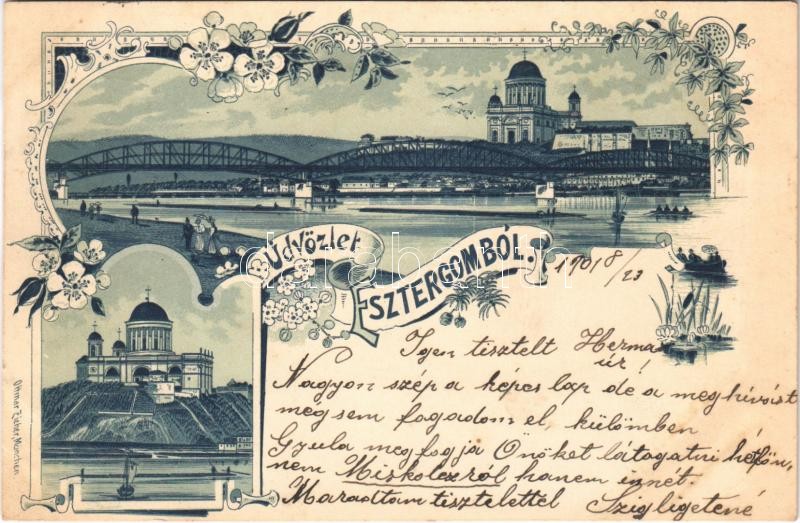 Üdvözlet
ESZTERGOMBÓL.
1901 8/23
Igen tisztelt Herman
úr!
Nagyon szép a képes lap de a meghívást
még sem fogadom el, külömben
Gyula meg fogja Önöket látogatni hétfőn,
nem Miskolczról hanem innét.
Maradtam tisztelettel Szigligetiné
Ottmar Zieher, München
darabanth.com